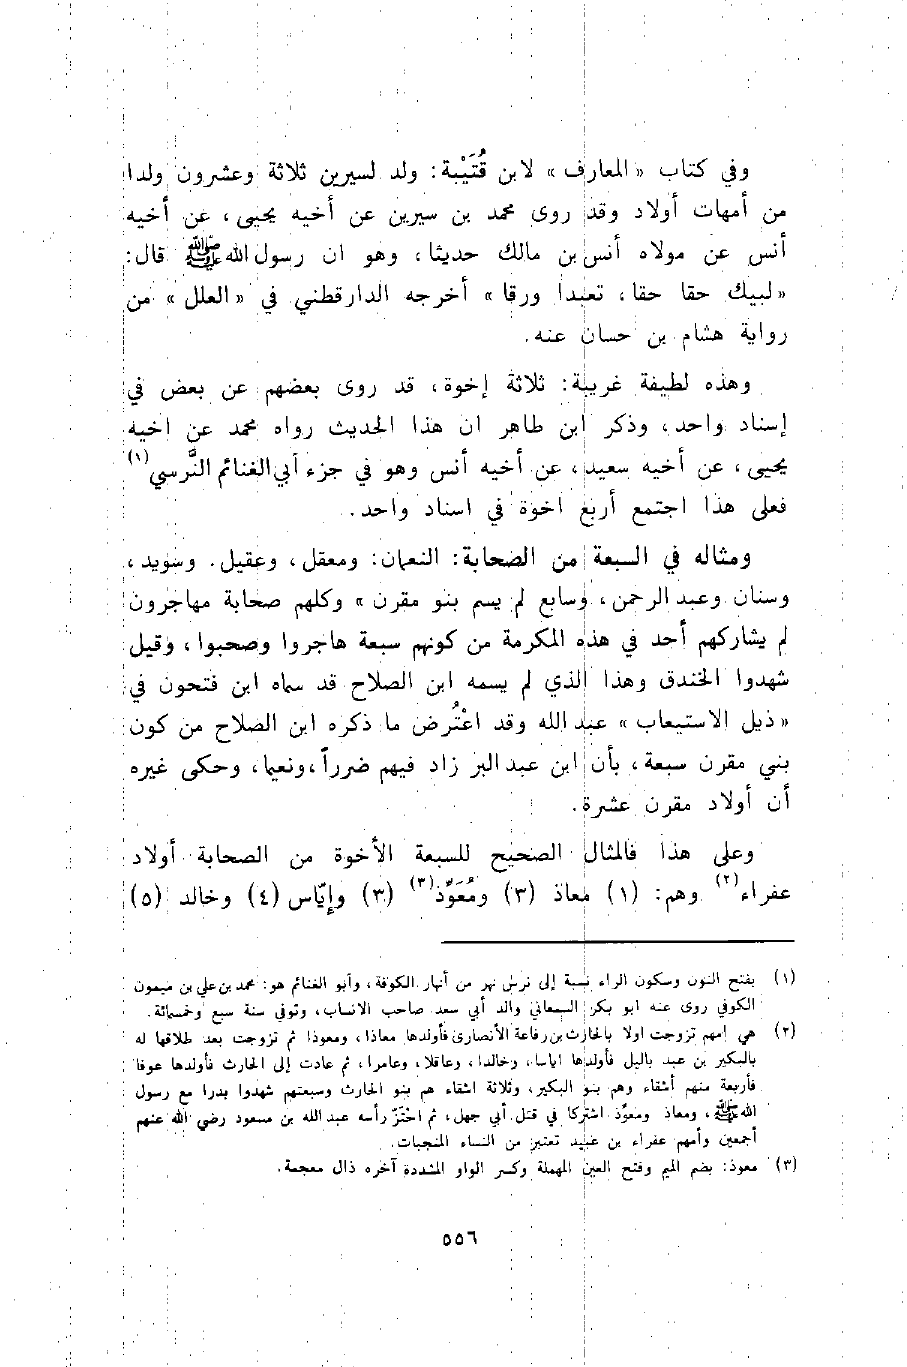 وفي كتاب «المعارف» لابن قُتَيْبة: ولد لسيرين ثلاثة وعشرون ولدا
من أمهات أولاد وقد روى محمد بن سيرين عن أخيه يحيى، عن أخيه
أنس عن مولاه أنس بن مالك حديثا، وهو ان رسول الله ﷺ قال:
«لبيك حقا حقا، تعبدا ورقا» أخرجه الدارقطني في «العلل» من
رواية هشام بن حسان عنه.
وهذه لطيفة غريبة: ثلاثة إخوة، قد روى بعضهم عن بعض في
إسناد واحد، وذكر ابن طاهر ان هذا الحديث رواه محمد عن اخيه
يحيى، عن أخيه سعيد، عن أخيه أنس وهو في جزء أبي الغنائم النَّرسي(١)
فعلى هذا اجتمع أربع اخوة في اسناد واحد.
ومثاله في السبعة من الصحابة: النعمان: ومعقل، وعقيل. وسويد،
وسنان وعبد الرحمن، وسابع لم يسم بنو مقرن» وكلهم صحابة مهاجرون
لم يشاركهم أحد في هذه المكرمة من كونهم سبعة هاجروا وصحبوا، وقيل
شهدوا الخندق وهذا الذي لم يسمه ابن الصلاح قد سماه ابن فتحون في
«ذيل الاستيعاب» عبد الله وقد اعْتُرض ما ذكره ابن الصلاح من كون
بني مقرن سبعة، بأن ابن عبد البر زاد فيهم ضرراً، ونعيما، وحكى غيره
أن أولاد مقرن عشرة.
وعلى هذا فالمثال الصحيح للسبعة الأخوة من الصحابة أولاد
عفراء(٢) وهم: (١) معاذ (٣) ومُعَوِّذ(٣) (٣) وإيّاس (٤) وخالد (٥)
(١) بفتح النون وسكون الراء نسبة إلى نرس نهر من أنهار الكوفة، وأبو الغنائم هو: محمد بن علي بن ميمون
الكوفي روى عنه ابو بكر السمعاني والد أبي سعد صاحب الانساب، وتوفي سنة سبع وخمسمائة.
(٢) هي أمهم تزوجت اولا بالحارث بن رفاعة الأنصاري فأولدها معاذا، ومعوذا ثم تزوجت بعد طلاقها له
بالبكير بن عبد ياليل فأولدها اياسا، وخالدا، وعاقلا، وعامرا، ثم عادت إلى الحارث فأولدها عوفا
فأربعة منهم أشقاء وهم بنو البكير، وثلاثة اشقاء هم بنو الحارث وسبعتهم شهدوا بدرا مع رسول
الله ﷺ، ومعاذ ومعوِّذ اشتركا في قتل أبي جهل، ثم احْتَزّ رأسه عبد الله بن مسعود رضي الله عنهم
أجمعين وأمهم عفراء بن عبيد تعتبر من النساء المنجبات.
(٣) معوذ: بضم الميم وفتح العين المهملة وكسر الواو المشددة آخره ذال معجمة.
٥٥٦